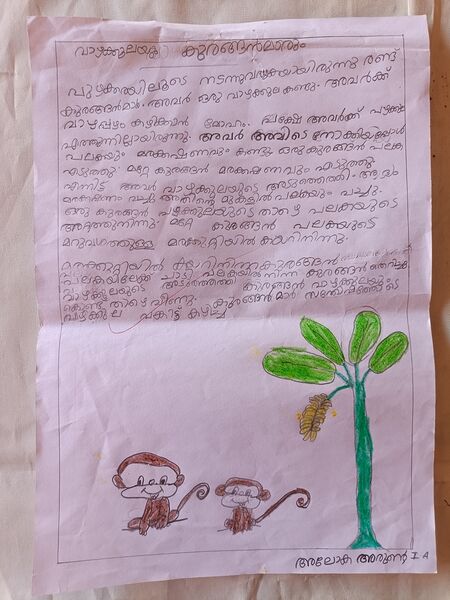 വാഴക്കുലയും കുരങ്ങൻമാരും
പുഴക്കരയിലൂടെ നടന്നുവരുകയായിരുന്നു രണ്ട്
കുരങ്ങൻമാർ. അവർ ഒരു വാഴക്കുല കണ്ടു. അവർക്ക്
വാഴപ്പഴം കഴിക്കാൻ മോഹം. പക്ഷേ അവർക്ക് പഴക്കുല
എത്തുന്നില്ലായിരുന്നു. അവർ അവിടെ നോക്കിയപ്പോൾ
പലകയും മരക്കഷണവും കണ്ടു. ഒരു കുരങ്ങൻ പലക
എടുത്തു. മറ്റേ കുരങ്ങൻ മരക്കഷണവും എടുത്തു
എന്നിട്ട് അവർ വാഴക്കുലയുടെ അടുത്തെത്തി. ആദ്യം
മരക്കഷണം വച്ചു അതിന്റെ മുകളിൽ പലകയും വച്ചു.
ഒരു കുരങ്ങൻ പഴക്കുലയുടെ താഴെ പലകയുടെ
അറ്റത്തുനിന്നു. മറ്റേ കുരങ്ങൻ പലകയുടെ
മറുവശത്തുള്ള മരക്കുറ്റിയിൽ കയറിനിന്നു.
മരക്കുറ്റിയിൽ കയറിനിന്ന കുരങ്ങൻ
പലകയിലേക്ക് ചാടി പലകയിൽ നിന്ന കുരങ്ങൻ തെറിച്ചു
വാഴക്കുലയുടെ അടുത്തെത്തി കുരങ്ങൻ വാഴക്കുലയും
കൊണ്ട് താഴെ വീണു. കുരങ്ങൻമാർ സന്തോഷത്തോടെ
വാഴക്കുല പങ്കിട്ട് കഴിച്ചു
അലോക അരുൺ I A